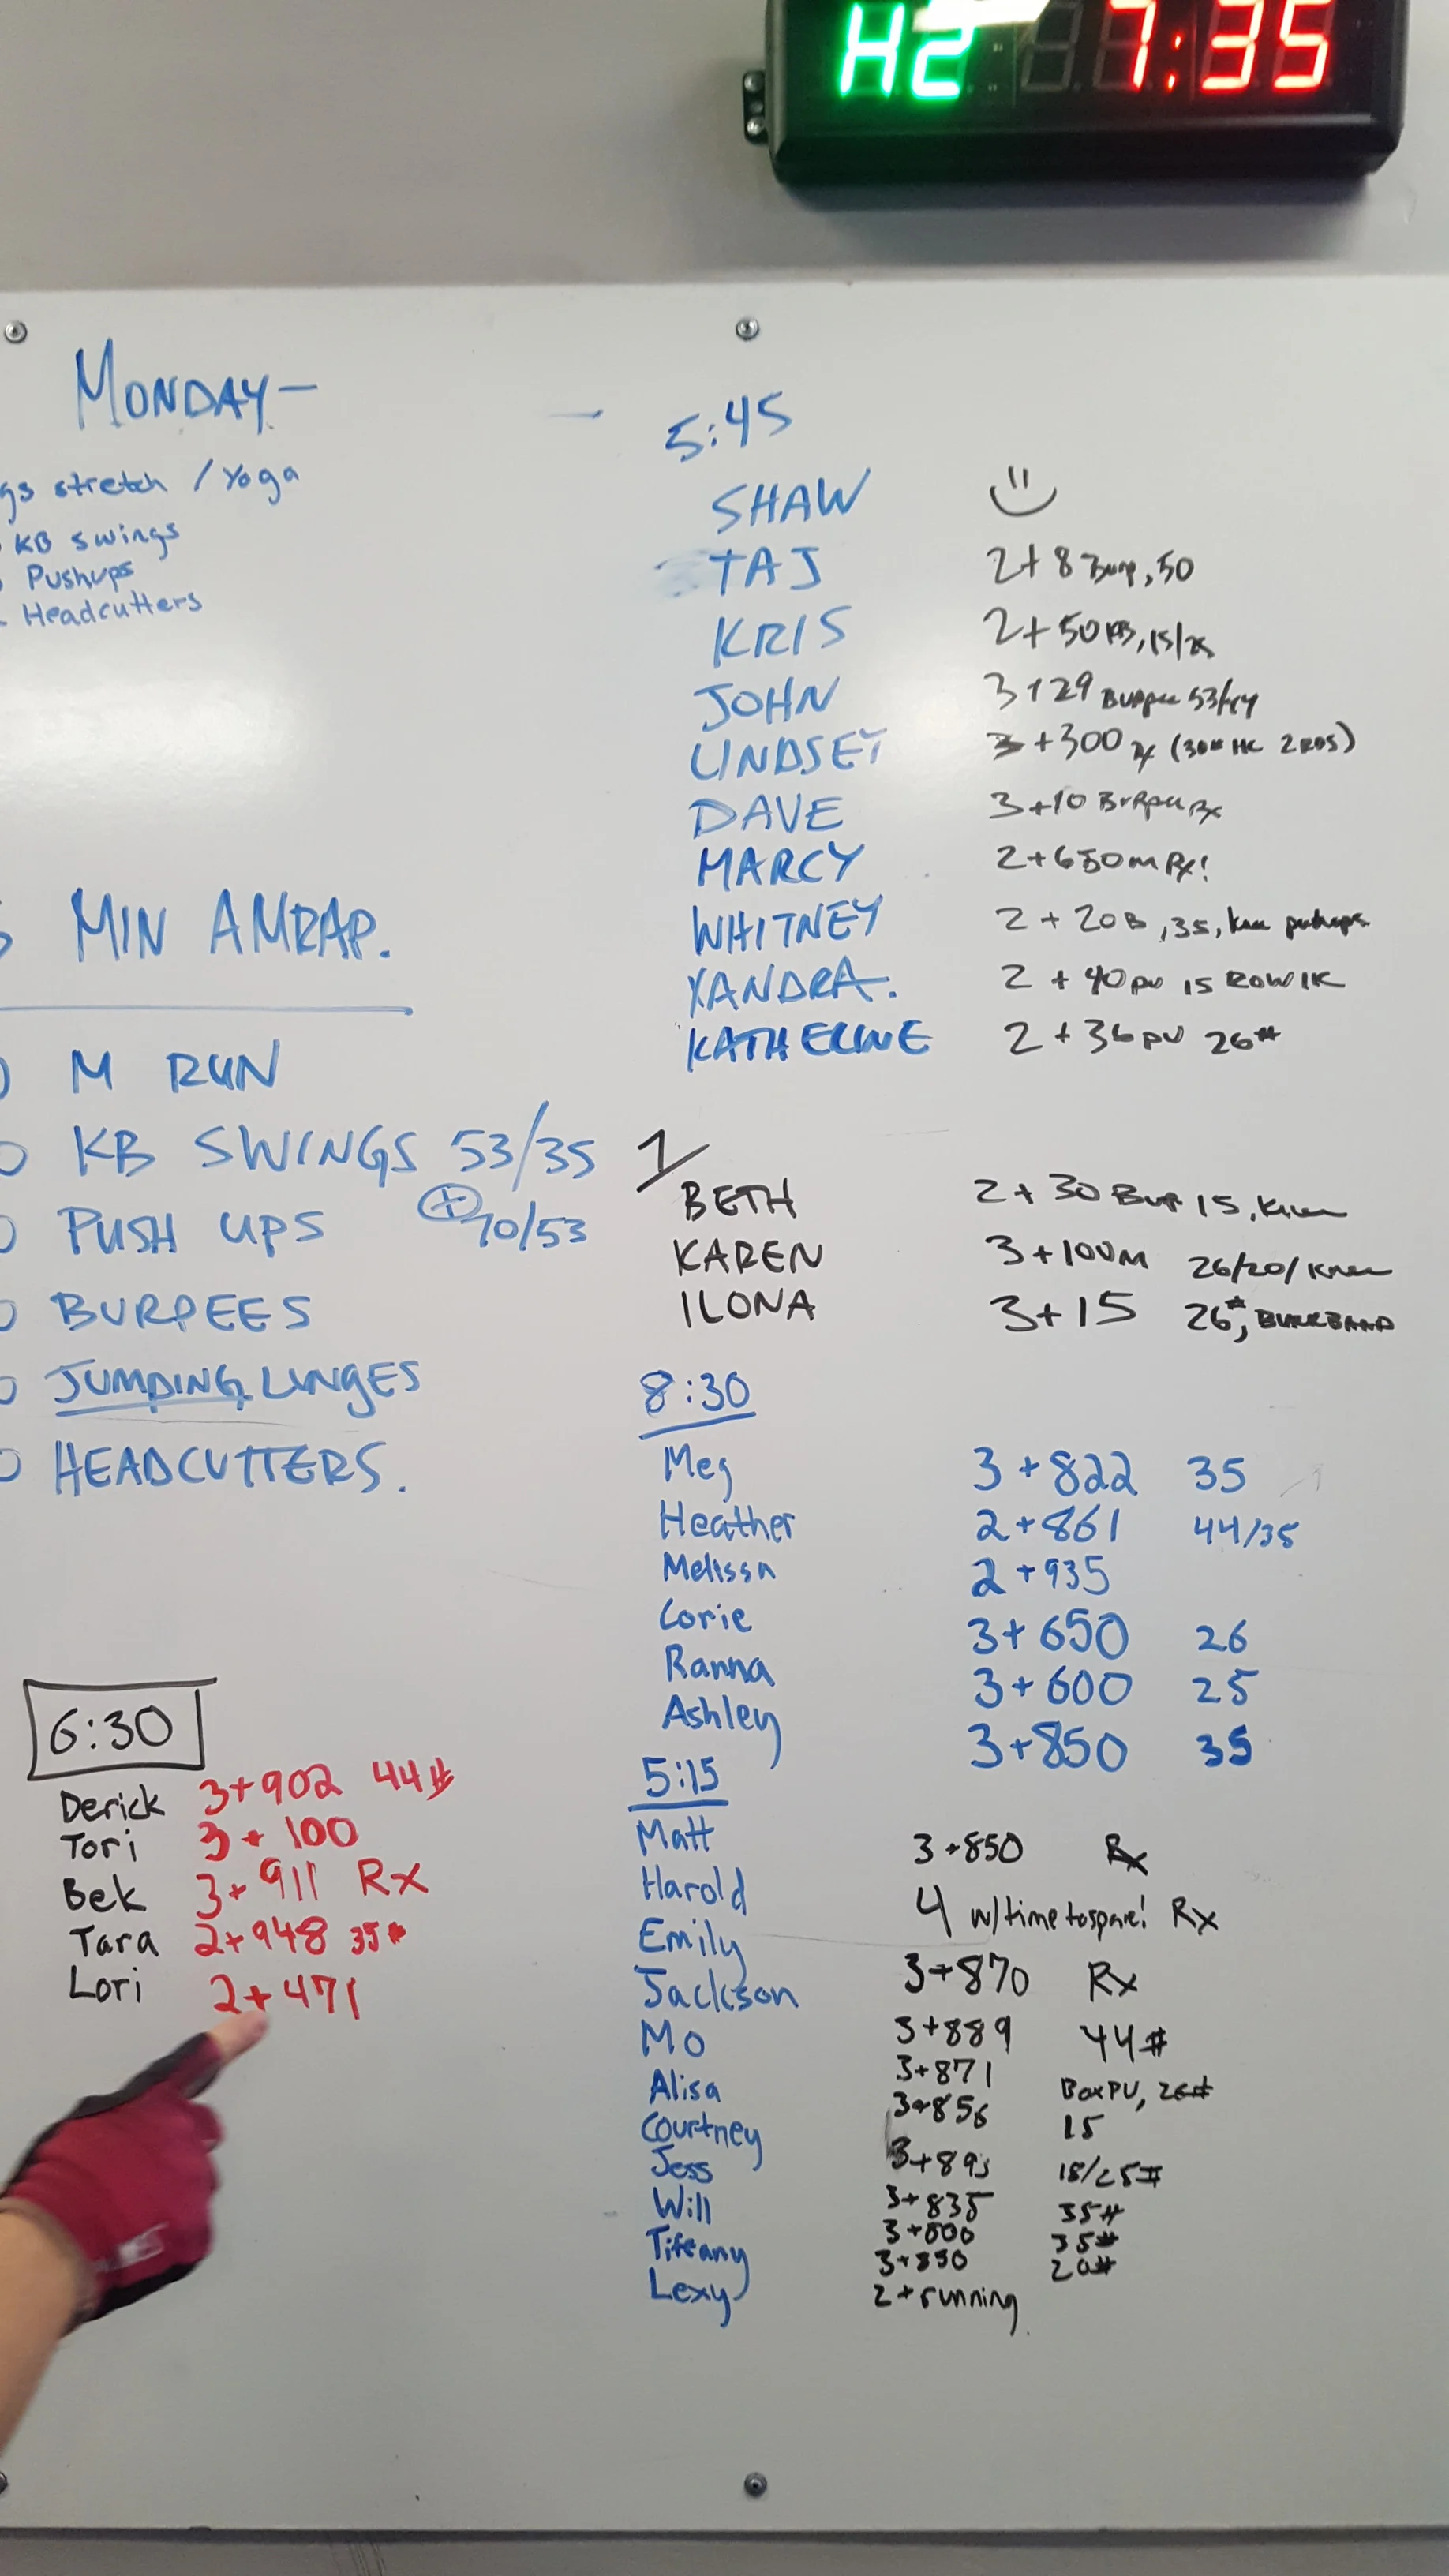 H2 7:35
MONDAY-
gs stretch / Yoga
KB swings
Pushups
Headcutters
MIN AMRAP.
M RUN
KB SWINGS 53/35
+ 70/53
PUSH UPS
BURPEES
JUMPING LUNGES
HEADCUTTERS.
6:30
Derick 3+902 44#
Tori 3+100
Bek 3+911 Rx
Tara 2+948 35#
Lori 2+471
5:45
SHAW
TAJ 2+8 Burp, 50
KRIS 2+50 KB, 15/25
JOHN 3+29 Burpee 53/44
LINDSEY 3+300 Rx (30# HC 2 RDS)
DAVE 3+10 Burpee Rx
MARCY 2+650m Rx!
WHITNEY 2+20B, 35, knee pushups
XANDRA. 2+40 pu 15 ROW 1K
KATHERINE 2+36 pu 26#
BETH 2+30 Bup 15, Knee
KAREN 3+100M 26/20/Knee
ILONA 3+15 26#,
8:30
Meg 3+822 35
Heather 2+861 44/35
Melissa 2+935
Corie 3+650 26
Ranna 3+600 25
Ashley 3+850 35
5:15
Matt 3+850 Rx
Harold 4 w/time to spare! Rx
Emily 3+870 Rx
Jackson 3+889 44#
Mo 3+871 Box PU, 26#
Alisa 3+856 15
Courtney 3+893 18/25#
Jess 3+835 35#
Will 3+800 35#
Tiffany 3+850 20#
Lexy 2+running